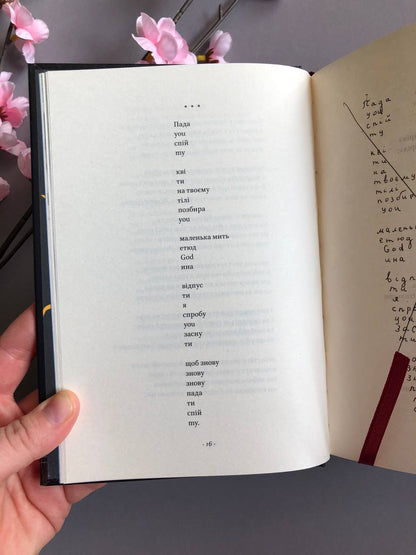 * * *
Пада
you
спій
my
кві
ти
на твоєму
тілі
позбира
you
маленька мить
етюд
God
ина
відпус
ти
я
спробу
you
засну
ти
щоб знову
знову
знову
пада
ти
спій
my.
- 16 -
Пада
you
спій
my
кві
ти
на
твоєму
тілі
you
етюд
God
ина
ти
я
you